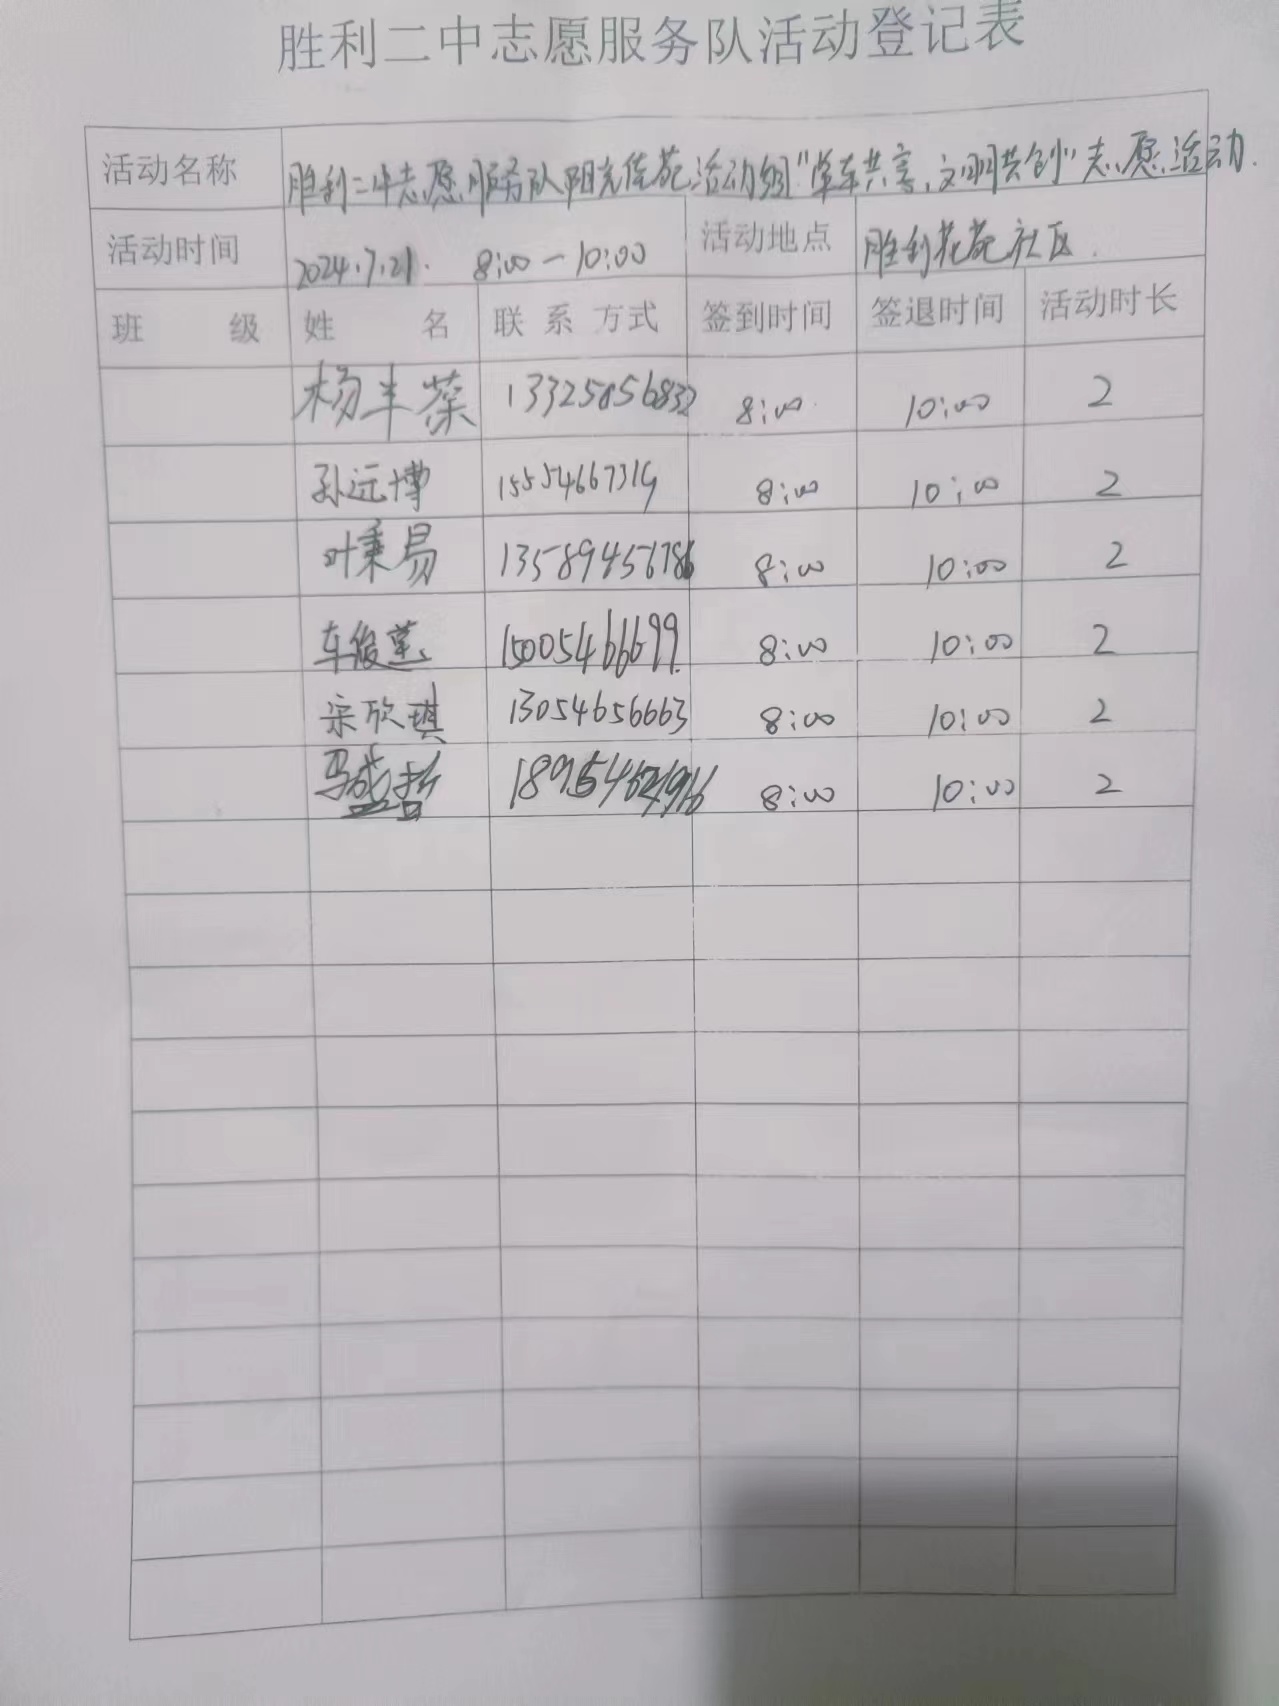 胜利二中志愿服务队活动登记表
活动名称 胜利二中志愿服务队阳光佳苑活动组“单车共享，文明共创”志愿活动.
活动时间 2024.7.21. 8:00-10:00 活动地点 胜利花苑社区.
班 级 姓 名 联 系 方式 签到时间 签退时间 活动时长
杨丰蔡 13325056832 8:00 10:00 2
孙远博 15554667319 8:00 10:00 2
叶秉易 8:00 10:00 2
车俊 15005466699 8:00 10:00 2
宋欣琪 13054656663 8:00 10:00 2
马盛哲 8:00 10:00 2